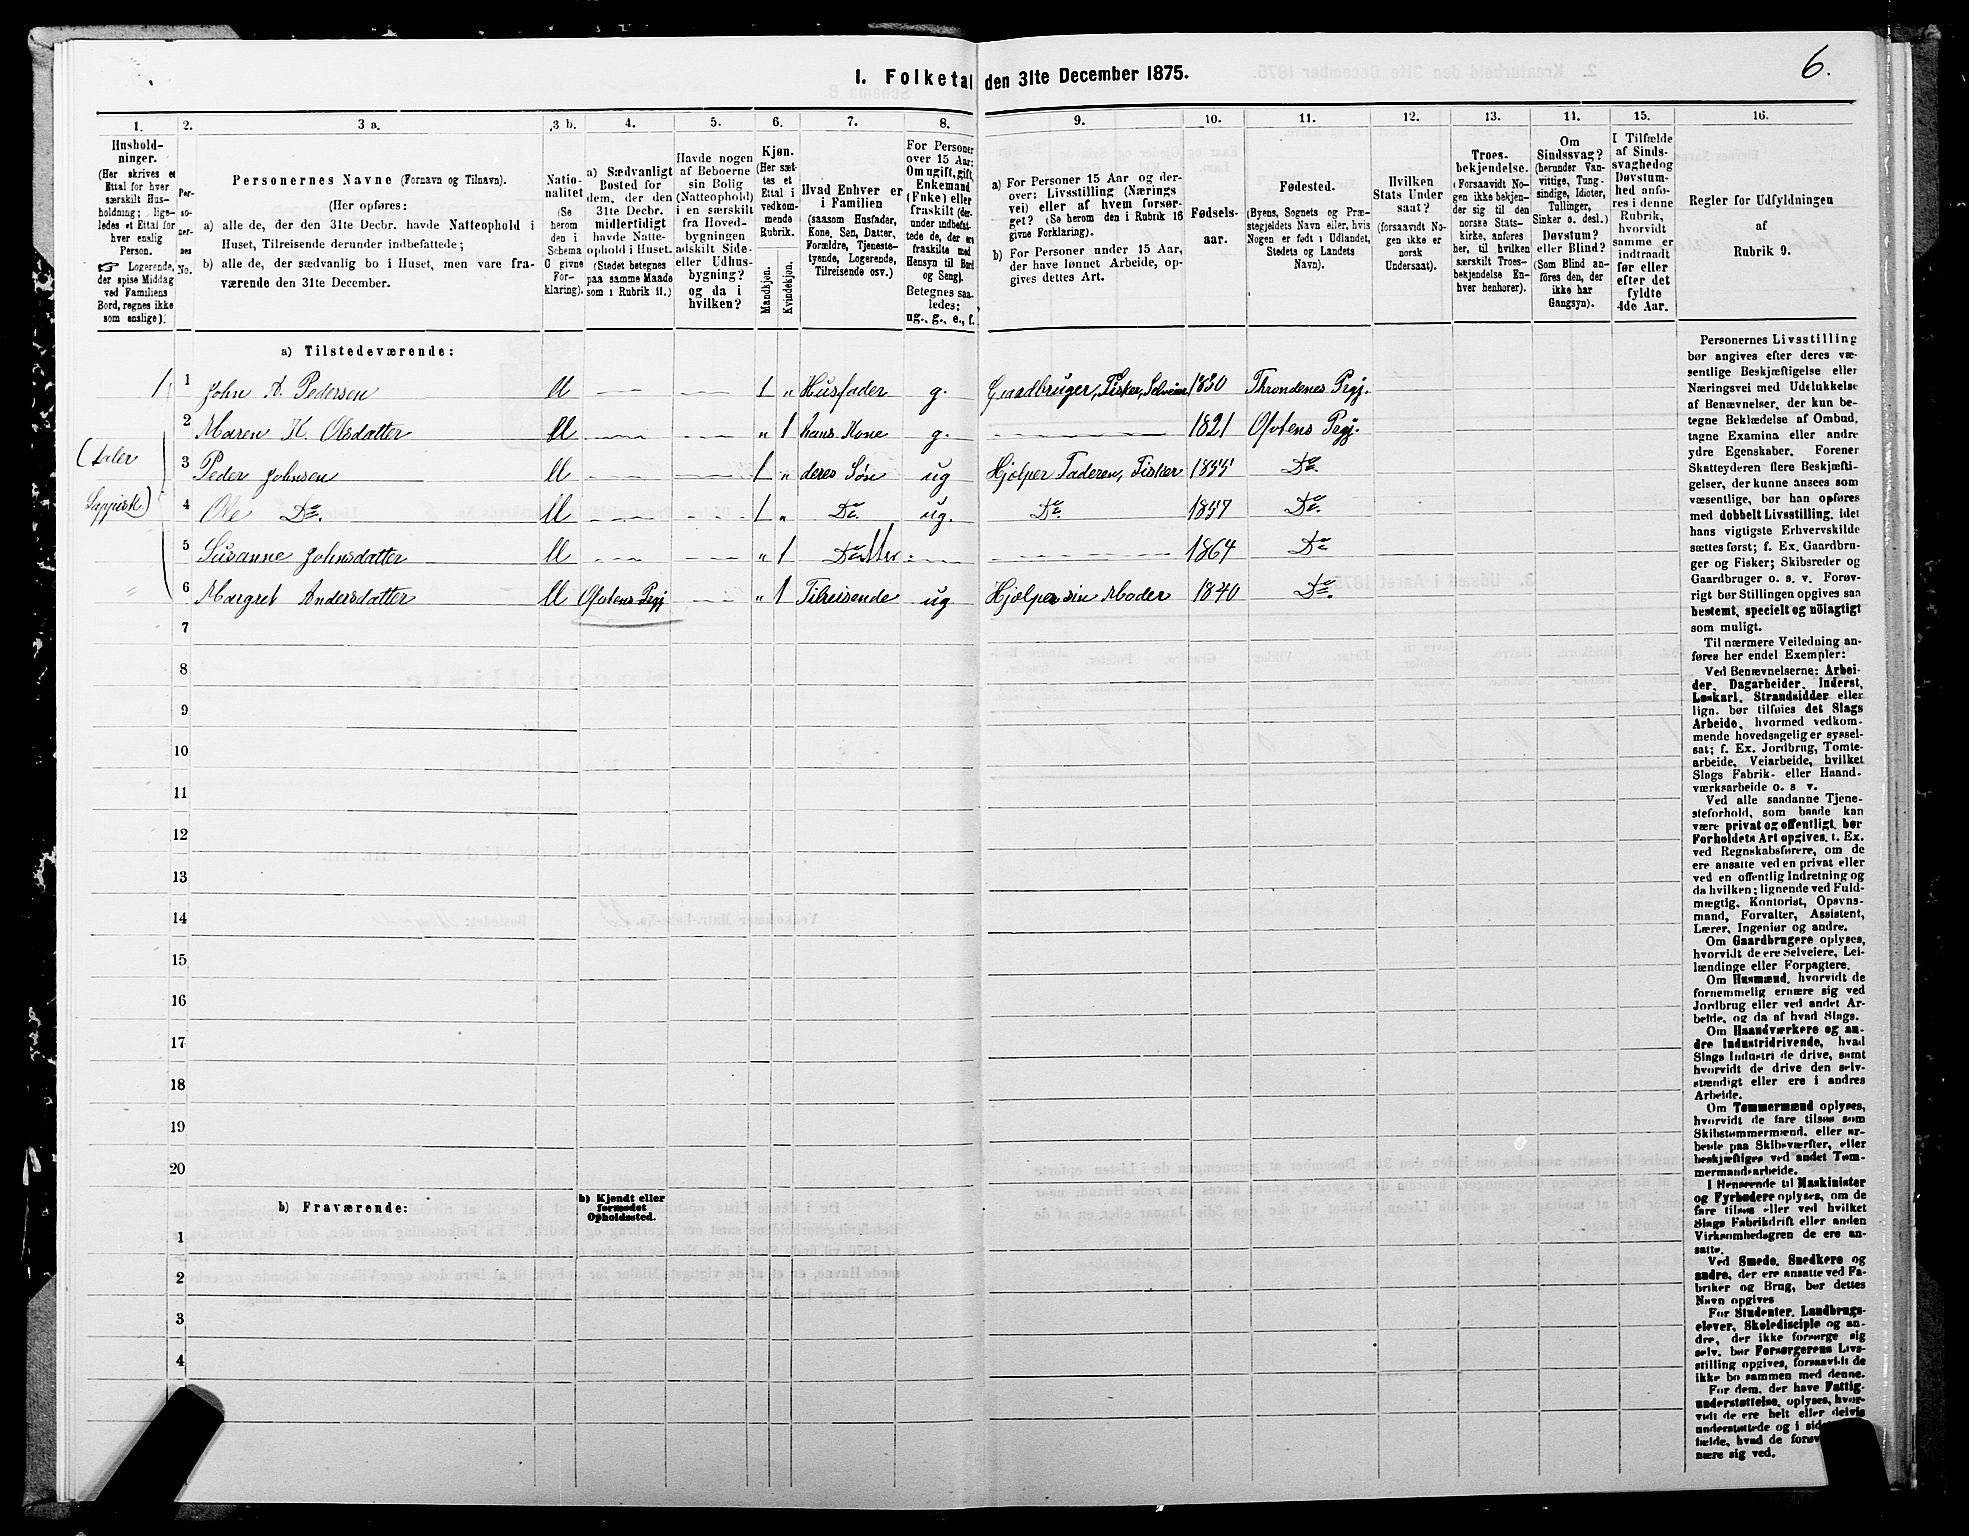 6.
1. Folketal den 31te December 1875.
1.
Hushold-
ninger.
(Her skrives et
Ettal for hver
særskilt Hus-
holdning; lige-
ledes et Ettal for
hver enslig
Person.
☞ Logerende,
der spise Middag
ved Familiens
Bord, regnes ikke
som enslige).
2.
Per-
so-
ner-
nes
No.
3 a.
Personernes Navne (Fornavn og Tilnavn).
(Her opføres:
a) alle de, der den 31te Decbr. havde Natteophold i
Huset, Tilreisende derunder indbefattede;
b) alle de, der sædvanlig bo i Huset, men vare fra-
værende den 31te December.
3 b.
Natio-
nalitet
(Se
herom
den i
Schema
O givne
For-
klaring).
4.
a) Sædvanligt
Bosted for
dem, der den
31te Decbr.
midlertidigt
havde Natte-
ophold i Huset.
(Stedet betegnes
paa samme Maade
som i Rubrik 11.)
5.
Havde nogen
af Beboerne
sin Bolig
(Natteophold)
i en særskilt
fra Hoved-
bygningen
adskilt Side-
eller Udhus-
bygning?
og da i
hvilken?
6.
Kjøn.
(Her sæt-
tes et
Ettal i
vedkom-
mende
Rubrik.
Mandkjøn.
Kvindekjøn.
7.
Hvad Enhver er
i Familien
(saasom Husfader,
Kone, Søn, Datter,
Forældre, Tjeneste-
tyende, Logerende,
Tilreisende osv.)
8.
For Personer
over 15 Aar:
Om ugift, gift,
Enkemand
(Enke) eller
fraskilt (der-
under indbefat-
tede de, der ere
fraskilte med
Hensyn til Bord
og Seng).
Betegnes saa-
ledes:
ug., g., e., f.
9.
a) For Personer 15 Aar og der-
over: Livsstilling (Nærings
vei) eller af hvem forsør-
get? (Se herom den i Rubrik 16
givne Forklaring).
b) For Personer under 15 Aar,
der have lønnet Arbeide, op-
gives dettes Art.
10.
Fødsels-
aar.
11.
Fødested.
(Byens, Sognets og Præ-
stegjeldets Navn eller, hvis
Nogen er født i Udlandet,
Stedets og Landets
Navn).
12.
Hvilken
Stats Under
saat?
(forsaavidt No-
gen ikke er
norsk
Undersaat).
13.
Troes-
bekjendelse.
(Forsaavidt No-
gen ikke bekjen-
der sig til den
norske Stats-
kirke, anføres
her, til hvilken
særskilt Troes-
bekjendelse En-
hver henhører).
11.
Om
Sindssvag?
(herunder Van-
vittige, Tung-
sindige, Idioter,
Tullinger,
Sinker o. desl.)
Døvstum?
eller Blind?
(Som Blind an-
føres den, der
ikke har
Gangsyn).
15.
I Tilfælde
af Sinds-
svaghedog
Døvstum-
hed anfø-
res i denne
Rubrik,
hvorvidt
samme er
indtraadt
før eller
efter det
fyldte
4de Aar.
16.
Regler for Udfyldningen
af
Rubrik 9.
a) Tilstedeværende:
1 1 John A. Pedersen 1 „ Husfader g. Gaardbruger, Fisker, Selveier 1830 Throndenes Prgj.
2 Maren K. Olsdatter „ 1 hans Kone g. 1821 Ofotens Prgj.
(taler
3 Peder Johnsen 1 „ deres Søn ug Hjelper Faderen, Fisker 1855 Do
Lappisk)
4 Ole Do. 1 „ Do. ug. Do. 1857 Do
5 Susanne Johnsdatter „ 1 1864 Do
„ 6 Margret Andersdatter Ofotens Prgj „ 1 Tilreisende ug Hjelper sin Moder 1840 Do.
7
8
9
10
11
12
13
14
15
16
17
18
19
20
b) Fraværende:
b) Kjendt eller
formodet
Opholdssted.
1
2
3
4
Personernes Livsstilling
bør angives efter deres væ-
sentlige Beskjæftigelse eller
Næringsvei med Udelukkelse
af Benævnelser, der kun be-
tegne Beklædelse af Ombud,
tagne Examina eller andre
ydre Egenskaber. Forener
Skatteyderen flere Beskjæfti-
gelser, der kunne ansees som
væsentlige, bør han opføres
med dobbelt Livsstilling, idet
hans vigtigste Erhvervskilde
sættes først; f. Ex. Gaardbru-
ger og Fisker; Skibsreder og
Gaardbruger o. s. v. Forøv-
rigt bør Stillingen opgives saa
bestemt, specielt og nöiagtigt
som muligt.
Til nærmere Veiledning an-
føres her endel Exempler:
Ved Benævnelserne: Arbei-
der, Dagarbeider, Inderst,
Løskarl, Strandsidder eller
lign. bør tilføies det Slags
Arbeide, hvormed vedkom-
mende hovedsagelig er syssel-
sat; f. Ex. Jordbrug, Tomte-
arbeide, Veiarbeide, hvilket
Slags Fabrik- eller Haand-
værksarbeide o. s v.
Ved alle saadanne Tjene-
steforhold, som baade kan
være privat og offentligt, bør
Forholdets Art opgives, t. Ex.
ved Regnskabsførere, om de
ere ansatte ved en privat eller
ved en offentlig Indretning og
da hvilken; lignende ved Fuld-
mægtig, Kontorist, Opsyns-
mand, Forvalter, Assistent,
Lærer, Ingeniør og andre.
Om Gaardbrugere oplyses,
hvorvidt de ere Selveiere, Lei-
lændinge eller Forpagtere.
Om Husmænd, hvorvidt de
fornemmelig ernære sig ved
Jordbrug eller ved andet Ar-
beide, og da af hvad Slags.
Om Haandværkere og an-
dre Industridrivende, hvad
Slags Industri de drive, samt
hvorvidt de drive den selv-
stændigt eller ere i andres
Arbeide.
Om Tømmermænd oplyses,
hvorvidt de fare tilsøs som
Skibstømmermænd, eller ar-
beide paa Skibsværfter, eller
beskjæftiges ved andet Tøm-
mermandsarbeide.
I Henseende til Maskinister
og Fyrbødere oplyses, om de
fare tilsøs eller ved hvilket
Slags Fabrikdrift eller anden
Virksomhedsgren de ere an-
satte.
Ved Smede, Snedkere og
andre, der ere ansatte ved Fa-
briker og Brug, bør dettes
Navn opgives
For Studenter, Landbrugs-
elever, Skoledisciple og an-
dre, der ikke forsørge sig
selv, bør Forsørgerens Livs-
stilling opgives, forsaavidt de
ikke bo sammen med denne.
For dem, der have Fattig-
understøttelse, oplyses, hvor-
vidt de ere helt eller delvis
understøttede og i
hvad de
nære sig ved.